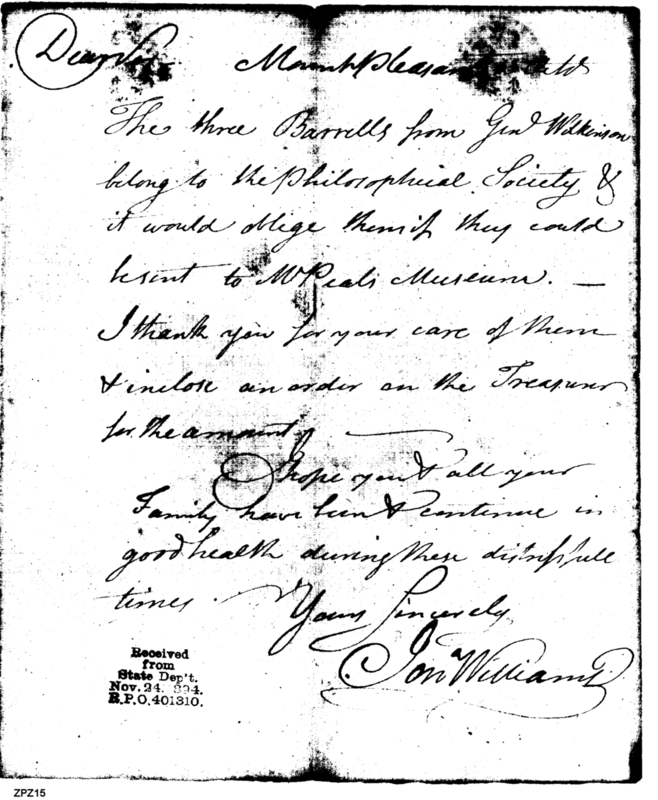 Dear Sir Mount Pleasant
The three Barrells from Genl Wilkinson
belong to the Philosophical Society &
it would oblige them if they could
be sent to Mr Peals Museum. —
I thank you for your care of them
& inclose an order on the Treasurer
for the amount. —
I hope you & all your
Family have been & continue in
good health during these distressfull
times. Yours Sincerely
Jon Williams
Received
from
State Dep't.
Nov. 24. 894.
R.P.O. 401310.
ZPZ15